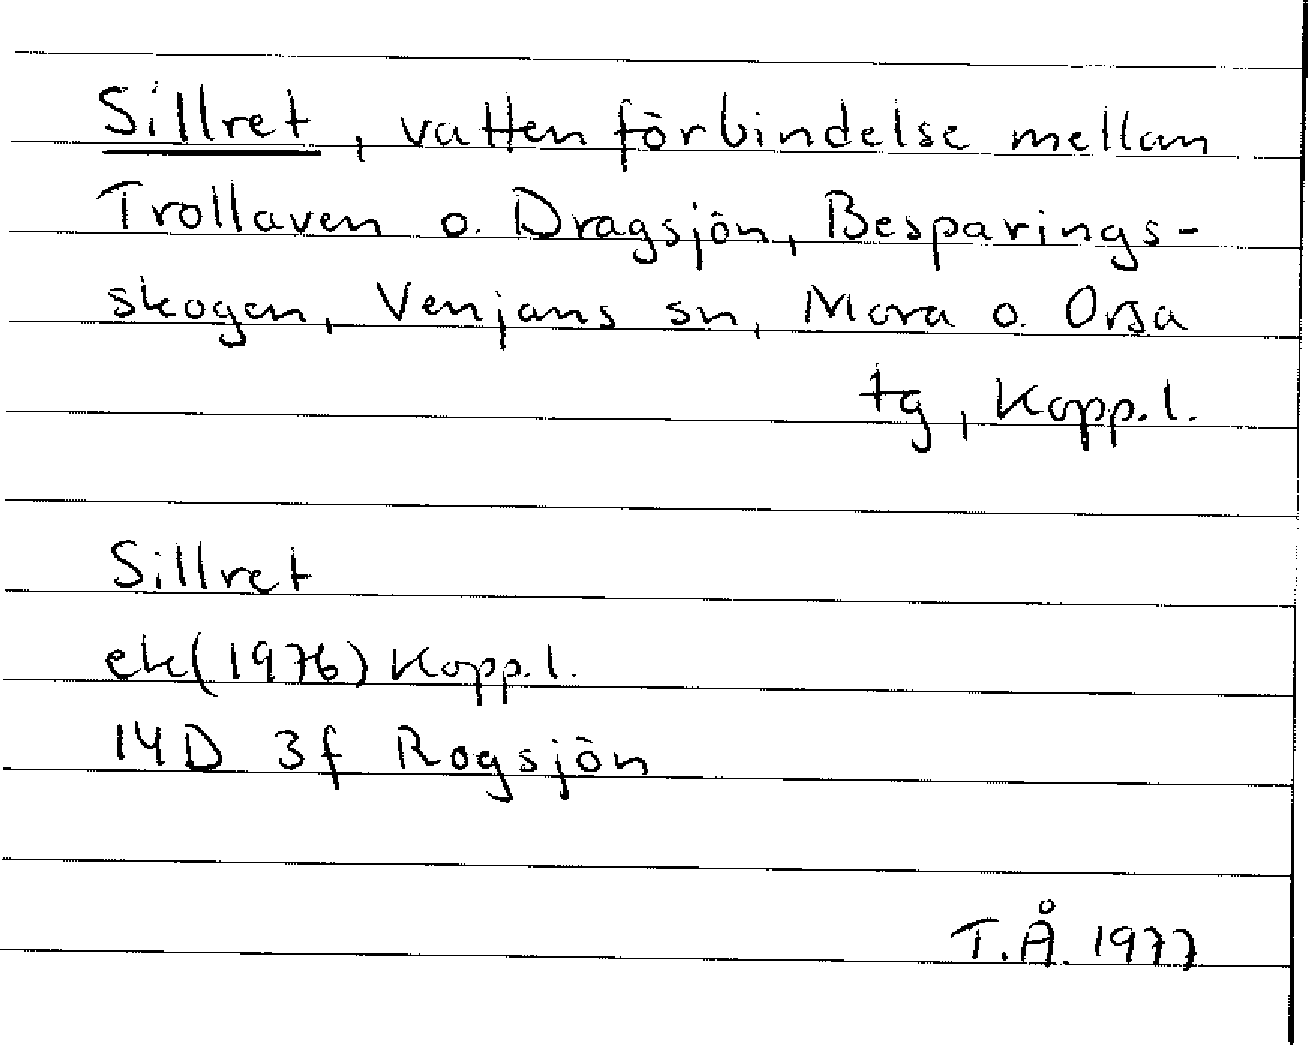 Sillret, vattenförbindelse mellan
Trollaven o. Dragsjön, Besparings-
skogen, Venjans sn, Mora o. Orsa
tg, Kopp.l.
Sillret
ek(1976) Kopp.l.
14D 3f Rogsjön
T.Å. 1977